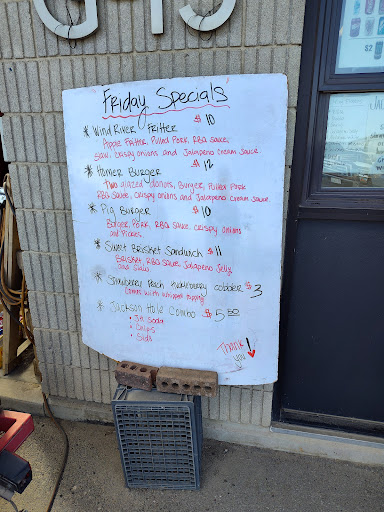 Friday Specials
* Wind River Fritter $10
Apple Fritter, Pulled Pork, BBQ Sauce,
Slaw, Crispy Onions and Jalapeno Cream Sauce.
* Homer Burger $12
Two glazed donuts, Burger, Pulled Pork
BBQ Sauce, Crispy Onions and Jalapeno Cream Sauce.
* Pig Burger $10
Burger, Pork, BBQ Sauce, Crispy Onions
and Pickles
* Sweet Brisket Sandwich $11
Brisket, BBQ Sauce, Jalapeno Jelly,
and Slaw
* Strawberry Peach Huckleberry Cobbler $3
Comes with whipped topping
* Jackson Hole Combo $5.00
• JH Soda
• Chips
• Side
Thank
you!
$2